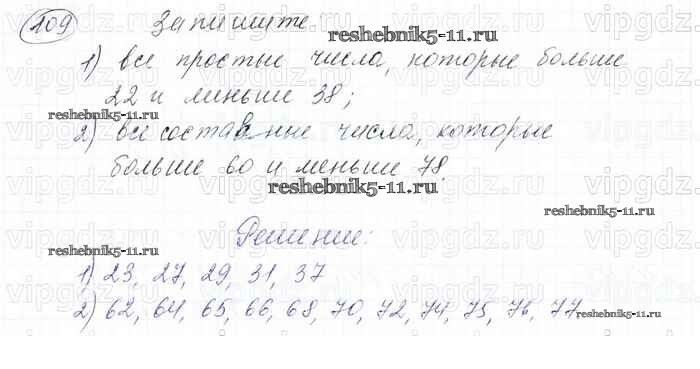 209 Запишите:
reshebnik5-11.ru
1) все простые числа, которые больше
22 и меньше 38;
reshebnik5-11.ru
2) все составные числа, которые
больше 60 и меньше 78.
reshebnik5-11.ru
reshebnik5-11.ru
Решение:
reshebnik5-11.ru
1) 23, 27, 29, 31, 37
2) 62, 64, 65, 66, 68, 70, 72, 74, 75, 76, 77
reshebnik5-11.ru
vipgdz.ru vipgdz.ru vipgdz.ru vipgdz.ru